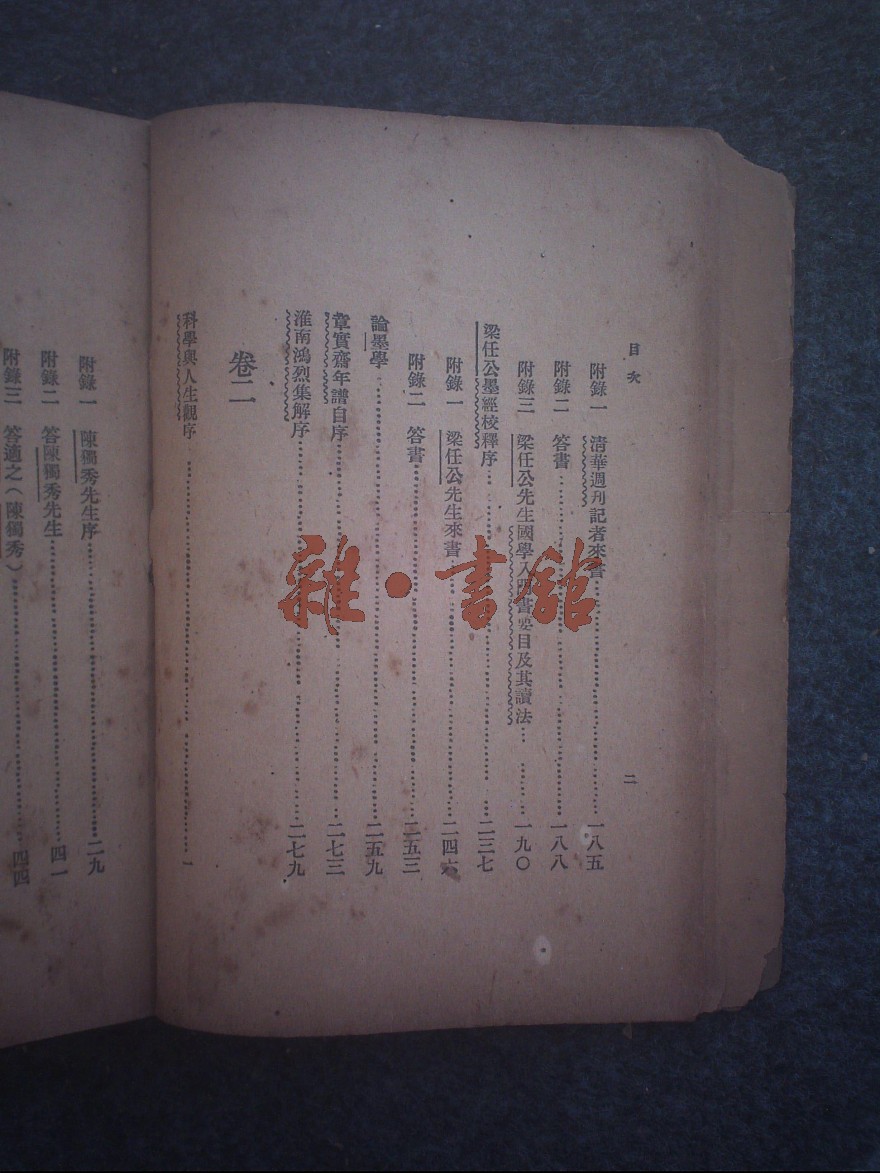 目次
二
附錄一 清華週刊記者來書……一八五
附錄二 答書……一八八
附錄三 梁任公先生國學入門書要目及其讀法……一九〇
梁任公墨經校釋序……二三七
附錄一 梁任公先生來書……二四六
附錄二 答書……二五三
論墨學……二五九
章實齋年譜自序……二七三
淮南鴻烈集解序……二七九
卷二
科學與人生觀序……一
附錄一 陳獨秀先生序……二九
附錄二 答陳獨秀先生……四一
附錄三 答適之（陳獨秀）……四四
雜·書館